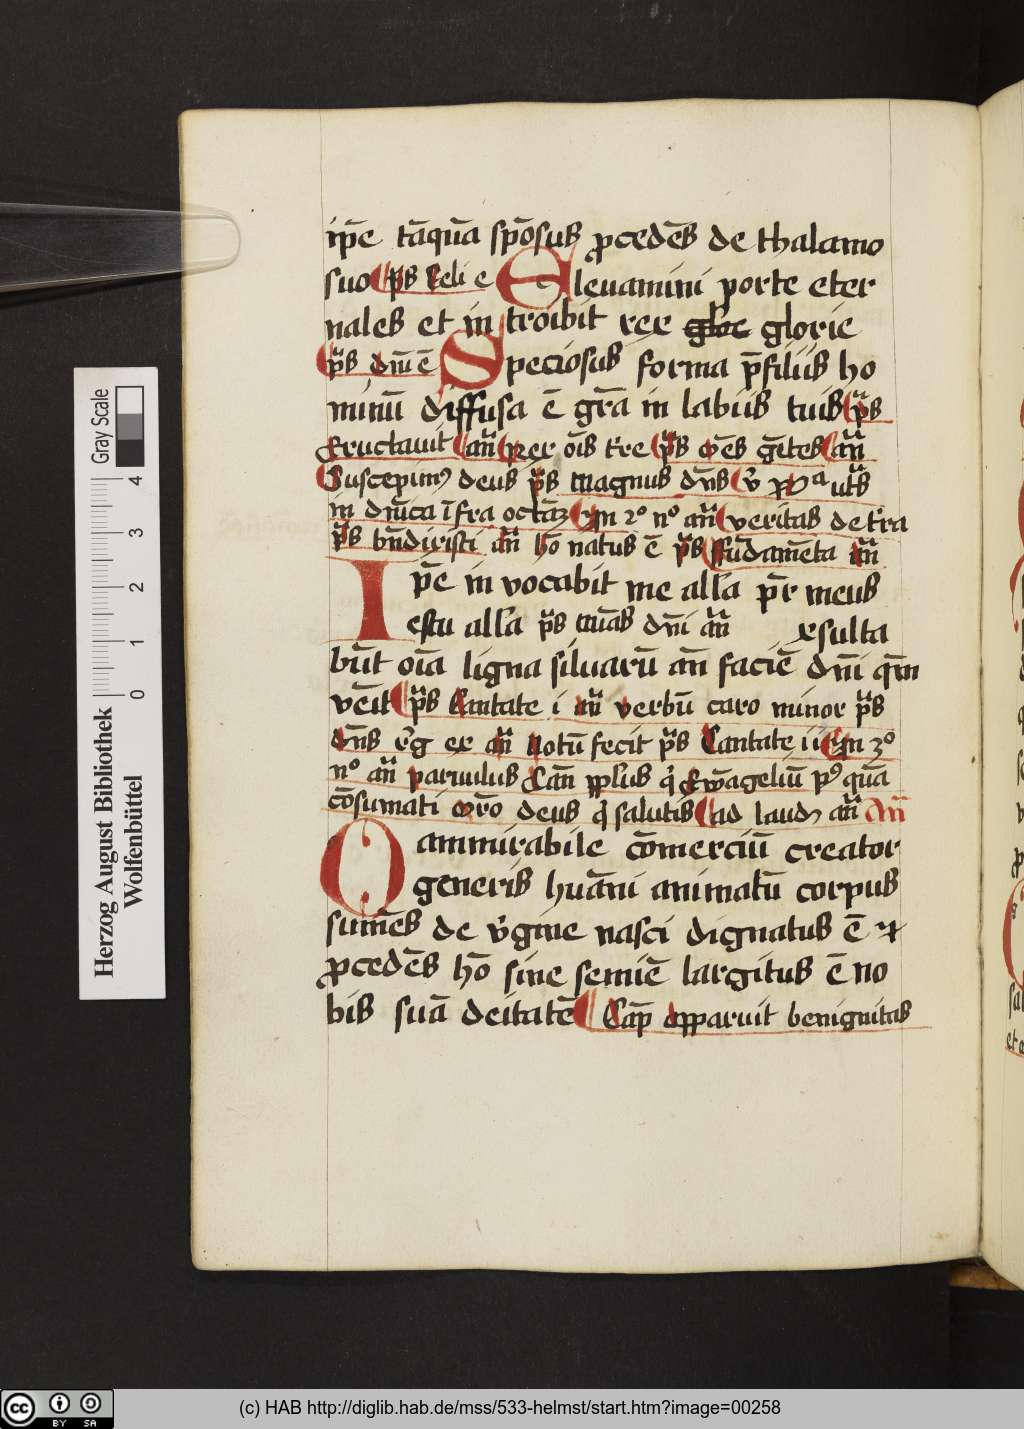 ip̄e tāquā spōsus ꝓcedēs de thalamo
suo p̄s Celi e Eleuamini porte eter
nales et in troibit rex gloe glorie
p̄s dn̄i ē Speciosus forma p̄ filiis ho
minū diffusa ē gr̄a in labiis tuis p̄s
Eructauit an̄ Rex oīs t're p̄s om̄es gētes an̄
Suscepim⁹ deus p̄s Magnus dn̄s
in dn̄ica īfra octāꝫ In 2º nº an̄ veritas de t'ra
p̄s bn̄dixisti an̄ hō natus ē p̄s ffūdamēta an̄
Ip̄e in vocabit me all'a p̄r meus
es tu all'a p̄s mīas dn̄i an̄ exsulta
būt oīa ligna siluarū an̄ faciē dn̄i qm̄
vēit p̄s Cantate i an̄ verbū caro minor p̄s
dn̄s r̄g ex an̄ Notū fecit p̄s Cantate ii In 3º
nº an̄ paruulus ꝓlus q' Ewāgeliū p⁹ quā
cōsumati oro deus q' salutis ad laud' an̄ An̄
O ammirabile cōmerciū creator
generis huāni animatū corpus
sumēs de v'gine nasci dignatus ē ⁊
ꝓcedēs hō sine semīe largitus ē no
bis suā deitatē Cap̄ Apparuit benignitas
Gray Scale
0 1 2 3 4
Herzog August Bibliothek
Wolfenbüttel
(c) HAB http://diglib.hab.de/mss/533-helmst/start.htm?image=00258
cc BY SA